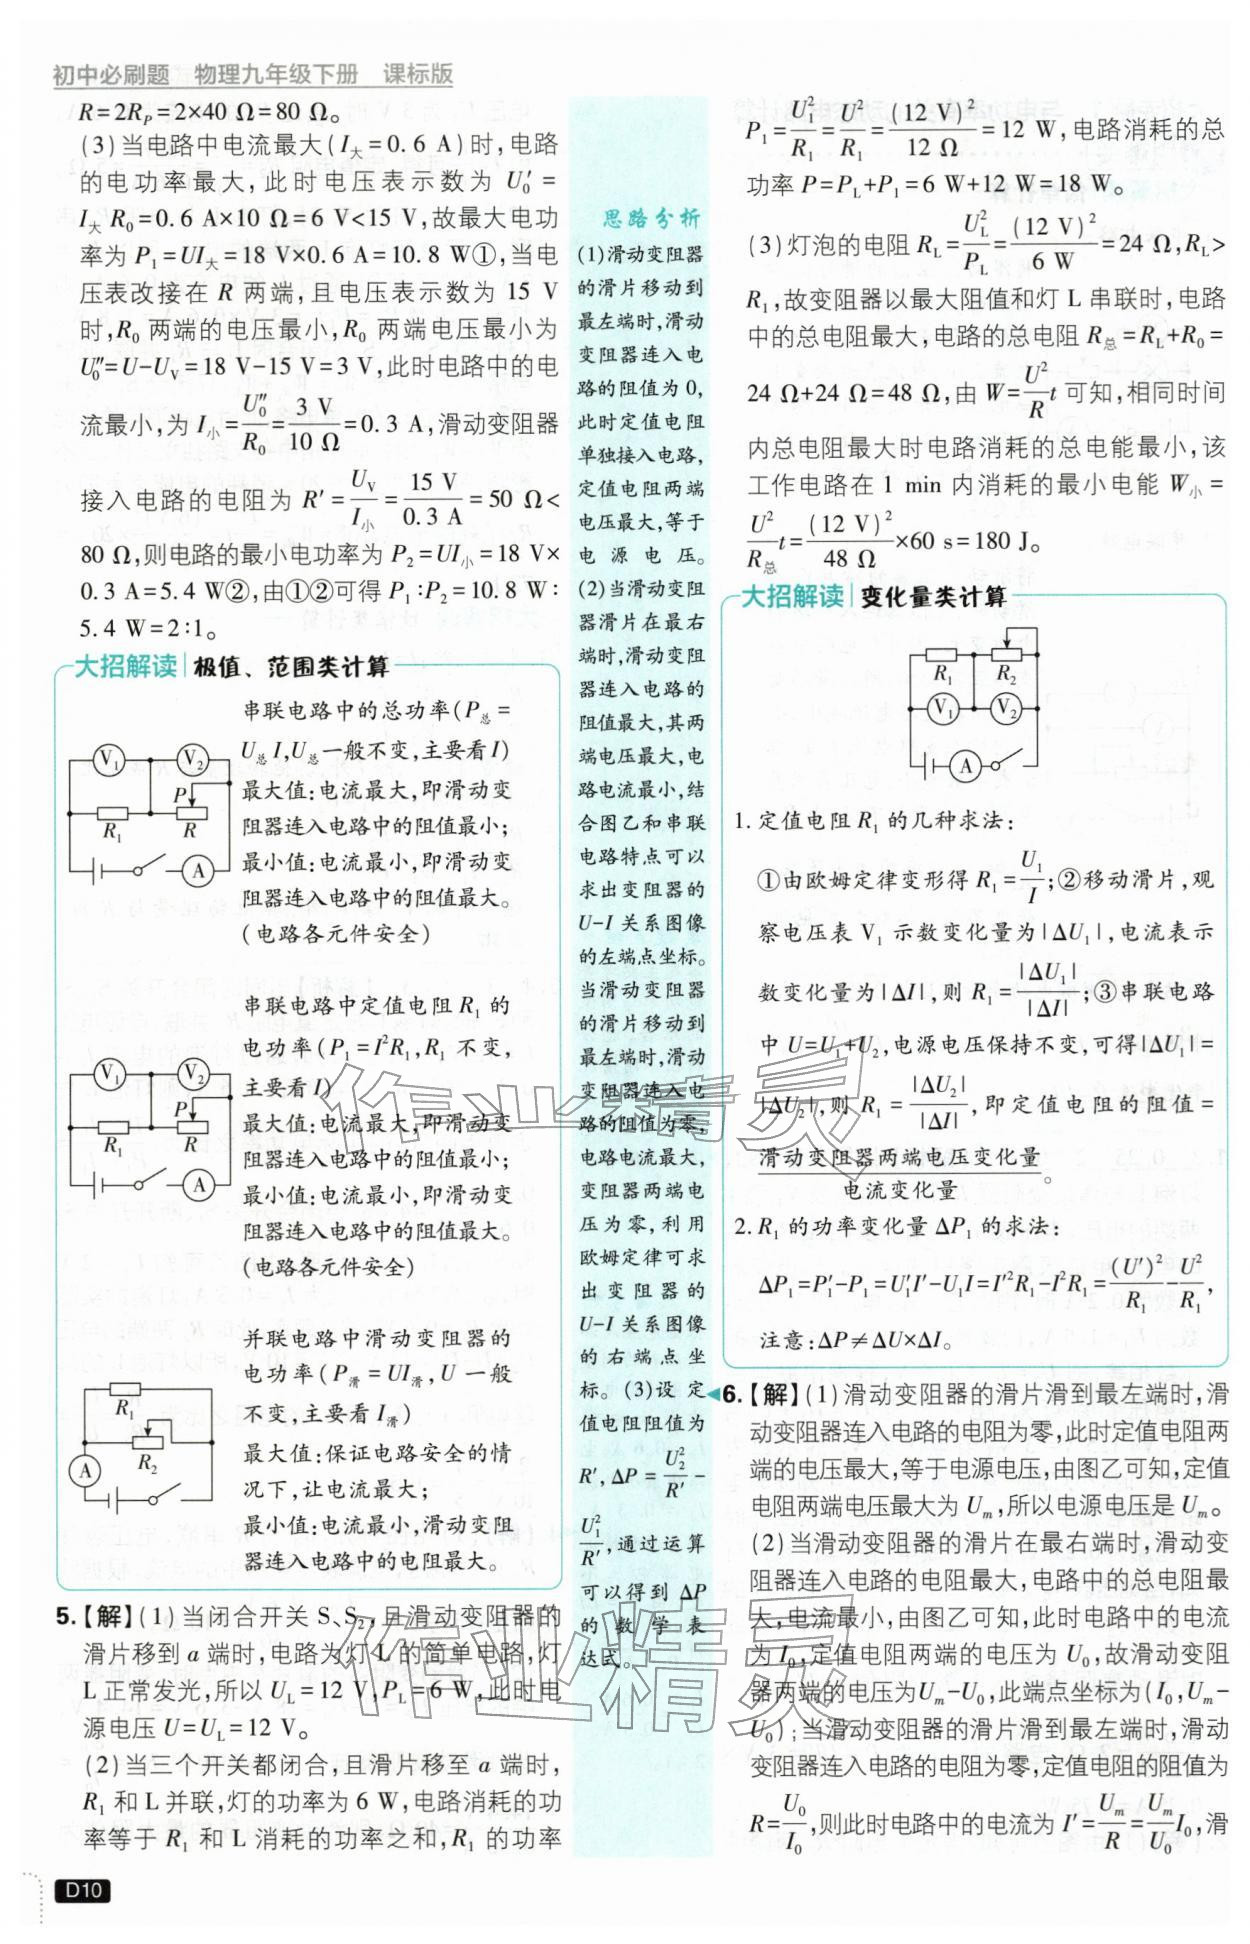 初中必刷题 物理九年级下册 课标版
R=2R_P=2×40 Ω=80 Ω。
(3)当电路中电流最大(I大=0.6 A)时,电路
的电功率最大,此时电压表示数为 U₀′=
I大R₀=0.6 A×10 Ω=6 V<15 V,故最大电功
率为 P₁=UI大=18 V×0.6 A=10.8 W①,当电
压表改接在 R 两端,且电压表示数为 15 V
时,R₀ 两端的电压最小,R₀ 两端电压最小为
U₀″=U-U_V=18 V-15 V=3 V,此时电路中的电
流最小,为 I小=U₀″/R₀=3 V/10 Ω=0.3 A,滑动变阻器
接入电路的电阻为 R′=U_V/I小=15 V/0.3 A=50 Ω<
80 Ω,则电路的最小电功率为 P₂=UI小=18 V×
0.3 A=5.4 W②,由①②可得 P₁∶P₂=10.8 W∶
5.4 W=2∶1。
大招解读 | 极值、范围类计算
串联电路中的总功率(P总=
U总I,U总一般不变,主要看I)
最大值:电流最大,即滑动变
阻器连入电路中的阻值最小;
最小值:电流最小,即滑动变
阻器连入电路中的阻值最大。
(电路各元件安全)
V₁ V₂
P
R₁ R
A
串联电路中定值电阻 R₁ 的
电功率(P₁=I²R₁,R₁ 不变,
主要看I)
最大值:电流最大,即滑动变
阻器连入电路中的阻值最小;
最小值:电流最小,即滑动变
阻器连入电路中的阻值最大。
(电路各元件安全)
V₁ V₂
P
R₁ R
A
并联电路中滑动变阻器的
电功率(P滑=UI滑,U 一般
不变,主要看 I滑)
最大值:保证电路安全的情
况下,让电流最大;
最小值:电流最小,滑动变阻
器连入电路中的电阻最大。
R₁
R₂
A
5.【解】(1)当闭合开关 S、S₂,且滑动变阻器的
滑片移到 a 端时,电路为灯 L 的简单电路,灯
L 正常发光,所以 U_L=12 V,P_L=6 W,此时电
源电压 U=U_L=12 V。
(2)当三个开关都闭合,且滑片移至 a 端时,
R₁ 和 L 并联,灯的功率为 6 W,电路消耗的功
率等于 R₁ 和 L 消耗的功率之和,R₁ 的功率
思路分析
(1)滑动变阻器
的滑片移动到
最左端时,滑动
变阻器连入电
路的阻值为 0,
此时定值电阻
单独接入电路,
定值电阻两端
电压最大,等于
电源电压。
(2)当滑动变阻
器滑片在最右
端时,滑动变阻
器连入电路的
阻值最大,其两
端电压最大,电
路电流最小,结
合图乙和串联
电路特点可以
求出变阻器的
U-I 关系图像
的左端点坐标。
当滑动变阻器
的滑片移动到
最左端时,滑动
变阻器连入电
路的阻值为零,
电路电流最大,
变阻器两端电
压为零,利用
欧姆定律可求
出变阻器的
U-I 关系图像
的右端点坐
标。(3)设定
值电阻阻值为
R′,ΔP=U₂²/R′-
U₁²/R′,通过运算
可以得到 ΔP
的数学表
达式。
P₁=U₁²/R₁=U²/R₁=(12 V)²/12 Ω=12 W,电路消耗的总
功率 P=P_L+P₁=6 W+12 W=18 W。
(3)灯泡的电阻 R_L=U_L²/P_L=(12 V)²/6 W=24 Ω,R_L>
R₁,故变阻器以最大阻值和灯 L 串联时,电路
中的总电阻最大,电路的总电阻 R总=R_L+R₀=
24 Ω+24 Ω=48 Ω,由 W=U²/R t 可知,相同时间
内总电阻最大时电路消耗的总电能最小,该
工作电路在 1 min 内消耗的最小电能 W小=
U²/R总 t=(12 V)²/48 Ω×60 s=180 J。
大招解读 | 变化量类计算
R₁ R₂
V₁ V₂
A
1.定值电阻 R₁ 的几种求法:
①由欧姆定律变形得 R₁=U₁/I;②移动滑片,观
察电压表 V₁ 示数变化量为|ΔU₁|,电流表示
数变化量为|ΔI|,则 R₁=|ΔU₁|/|ΔI|;③串联电路
中 U=U₁+U₂,电源电压保持不变,可得|ΔU₁|=
|ΔU₂|,则 R₁=|ΔU₂|/|ΔI|,即定值电阻的阻值=
滑动变阻器两端电压变化量/电流变化量。
2.R₁ 的功率变化量 ΔP₁ 的求法:
ΔP₁=P₁′-P₁=U₁′I′-U₁I=I′²R₁-I²R₁=(U′)²/R₁-U²/R₁,
注意:ΔP≠ΔU×ΔI。
6.【解】(1)滑动变阻器的滑片滑到最左端时,滑
动变阻器连入电路的电阻为零,此时定值电阻两
端的电压最大,等于电源电压,由图乙可知,定值
电阻两端电压最大为 Uₘ,所以电源电压是 Uₘ。
(2)当滑动变阻器的滑片在最右端时,滑动变
阻器连入电路的电阻最大,电路中的总电阻最
大,电流最小,由图乙可知,此时电路中的电流
为 I₀,定值电阻两端的电压为 U₀,故滑动变阻
器两端的电压为Uₘ-U₀,此端点坐标为(I₀,Uₘ-
U₀);当滑动变阻器的滑片滑到最左端时,滑动
变阻器连入电路的电阻为零,定值电阻的阻值为
R=U₀/I₀,则此时电路中的电流为 I′=Uₘ/R=Uₘ/U₀ I₀,滑
作业精灵
作业精灵
D10